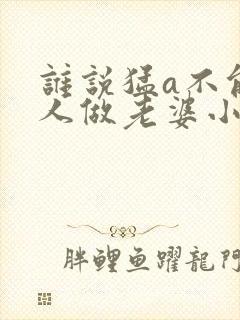 誰說猛a不
人做老婆小
胖鲤鱼躍龍門